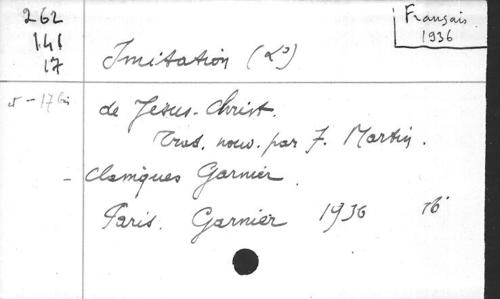 262
141
17
Français
1936
Imitation (L')
de Jesus-Christ.
Trad. nouv. par J. Martin.
- Classiques Garnier.
Paris. Garnier 1936